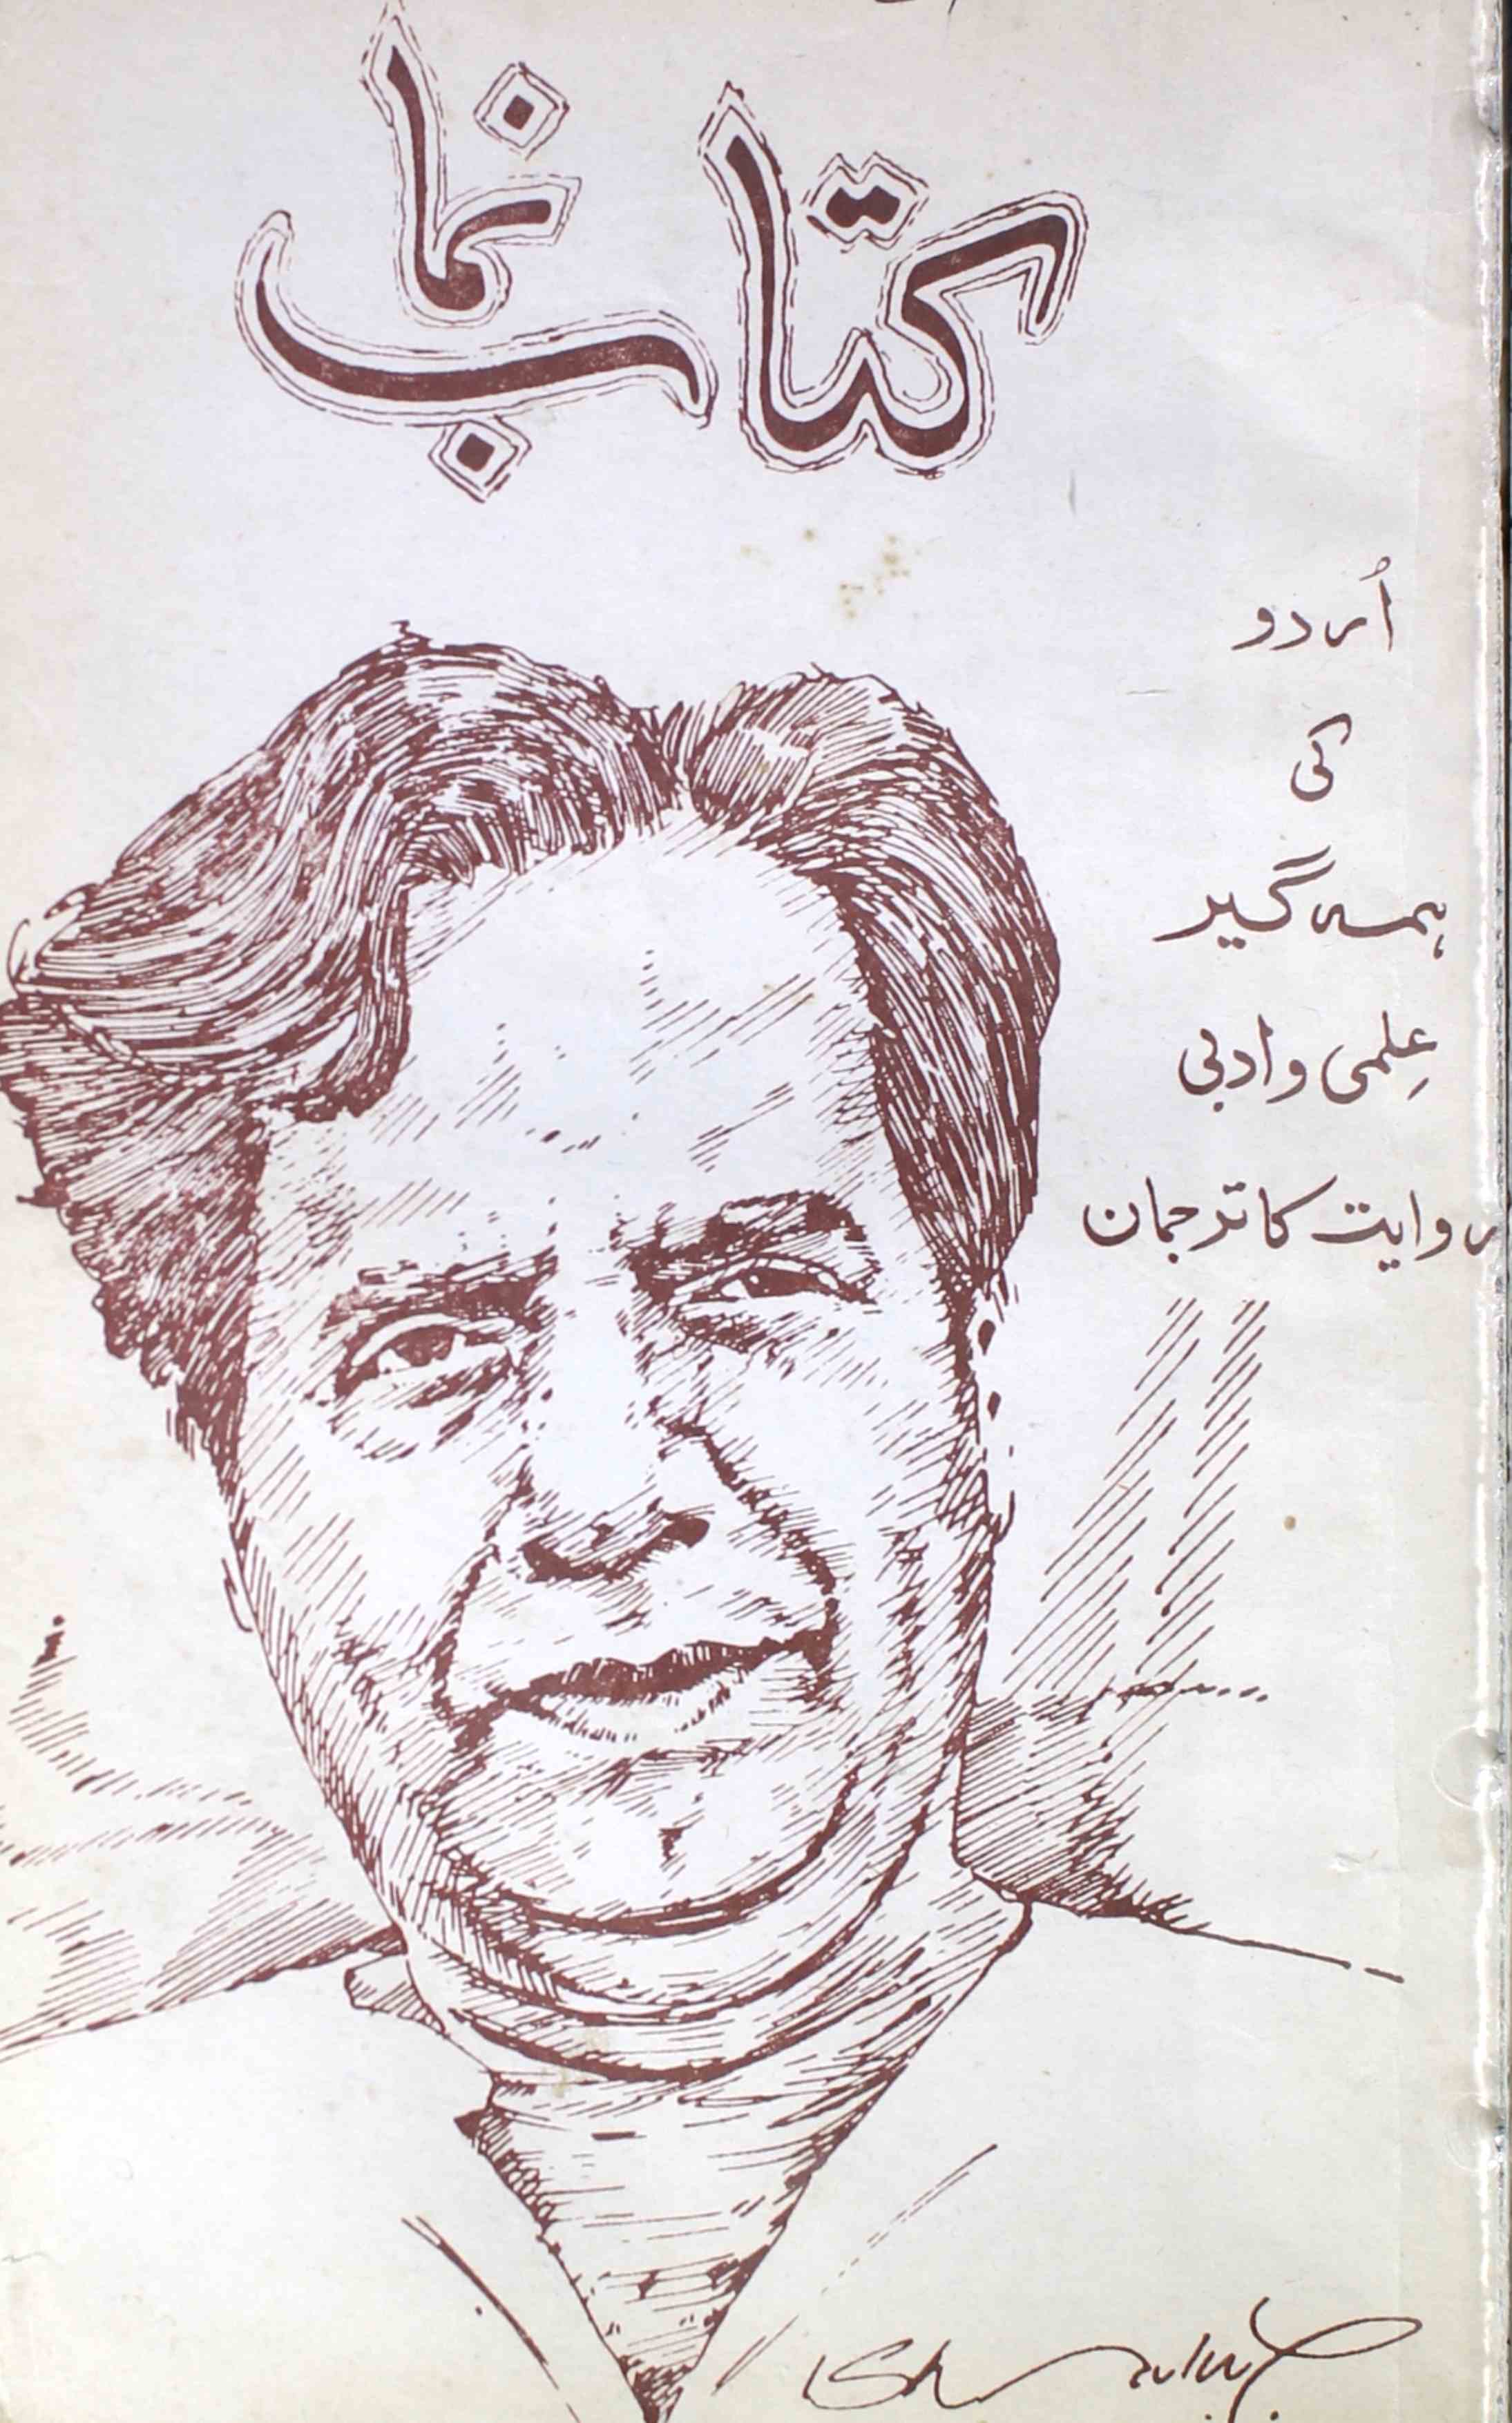 کتاب نما
اُردو
کی
ہمہ گیر
عِلمی و ادبی
روایت کا ترجمان